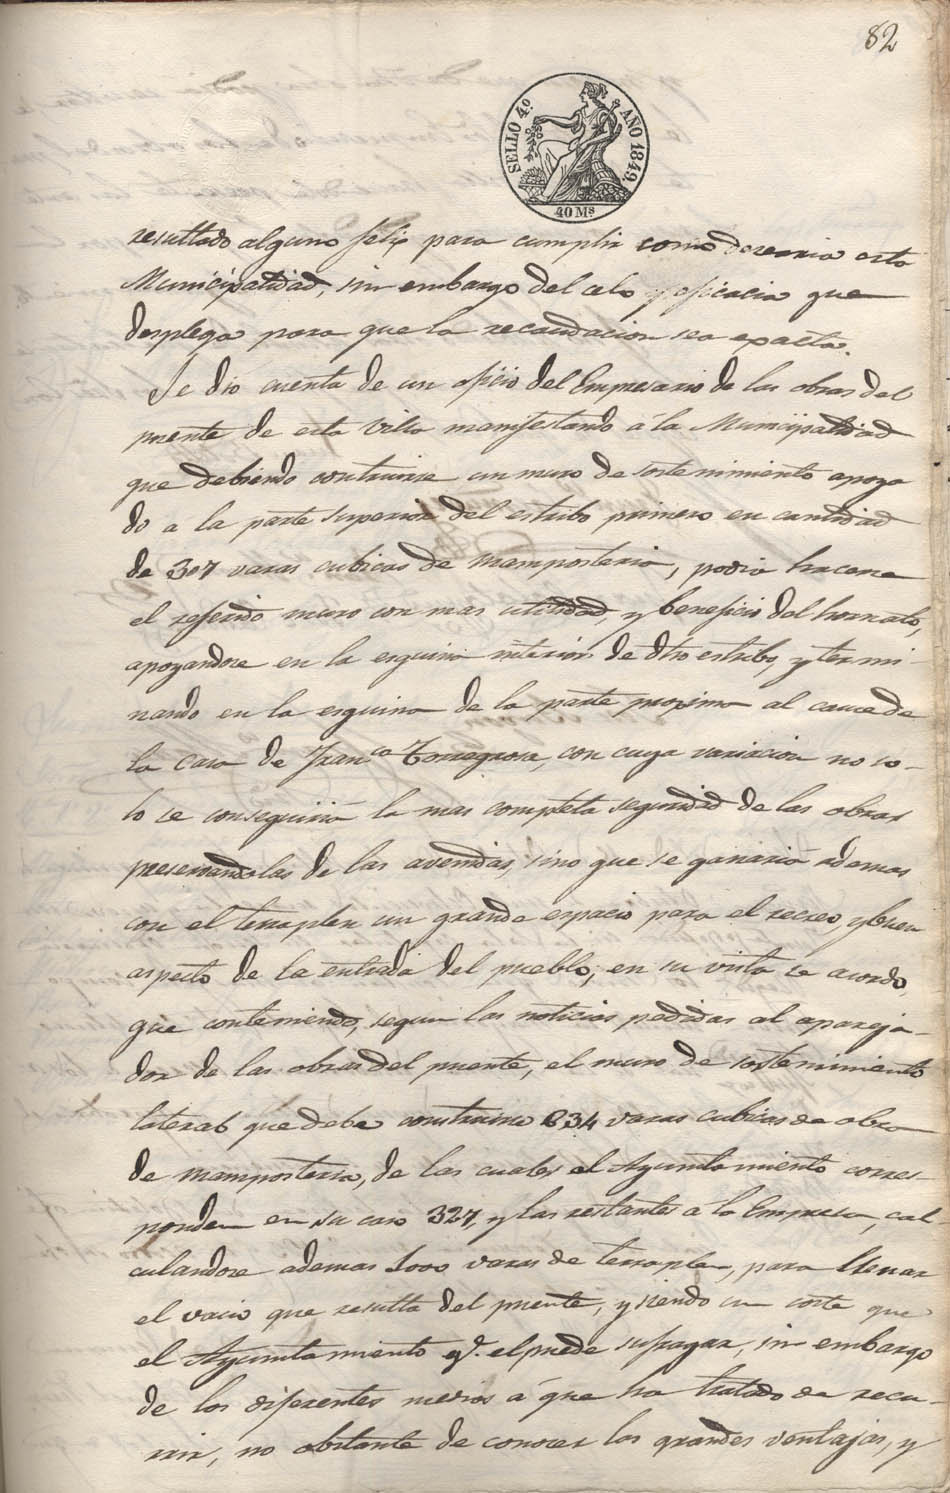 82
SELLO 4.º AÑO 1849.
40 Ms
resultado alguno felix para cumplir como desearia esta
Municipalidad, sin embargo del celo y eficacia que
desplega para que la recaudacion sea exacta.
Se dió cuenta de un oficio del Empresario de las obras del
puente de esta Villa manifestando á la Municipalidad
que debiendo contruirse un muro de sostenimiento apoya
do a la parte superior del estribo primero en cantidad
de 307 varas cubicas de mamposteria, podia hacerse
el referido muro con mas utilidad, y beneficio del hornato,
apoyandose en la esquina interior de dho estribo, y termi-
nando en la esquina de la parte proxima al cauce de
la Casa de Franca Torregrosa, con cuya variacion no so-
lo se conseguiria la mas completa seguridad de las obras
preservandolas de las avenidas, sino que se ganaria ademas
con el terraplen un grande espacio para el recreo, y buen
aspecto de la entrada del pueblo; en su vista se acordó,
que conteniendo, segun las noticias pedidas al apareja-
dor de las obras del puente, el muro de sostenimiento
lateral que debe construirse 634 varas cubicas de obra
de mamposteria, de las cuales al Ayuntamiento corres-
ponden en su caso 327, y las restantes á la Empresa, cal-
culandose ademas 1000 varas de terraplen, para llenar
el vacio que resulta del puente, y siendo un coste que
el Ayuntamiento qe. el puede sufragar, sin embargo
de los diferentes medios á que ha tratado de recu-
rrir, no obstante de conocer las grandes ventajas, y